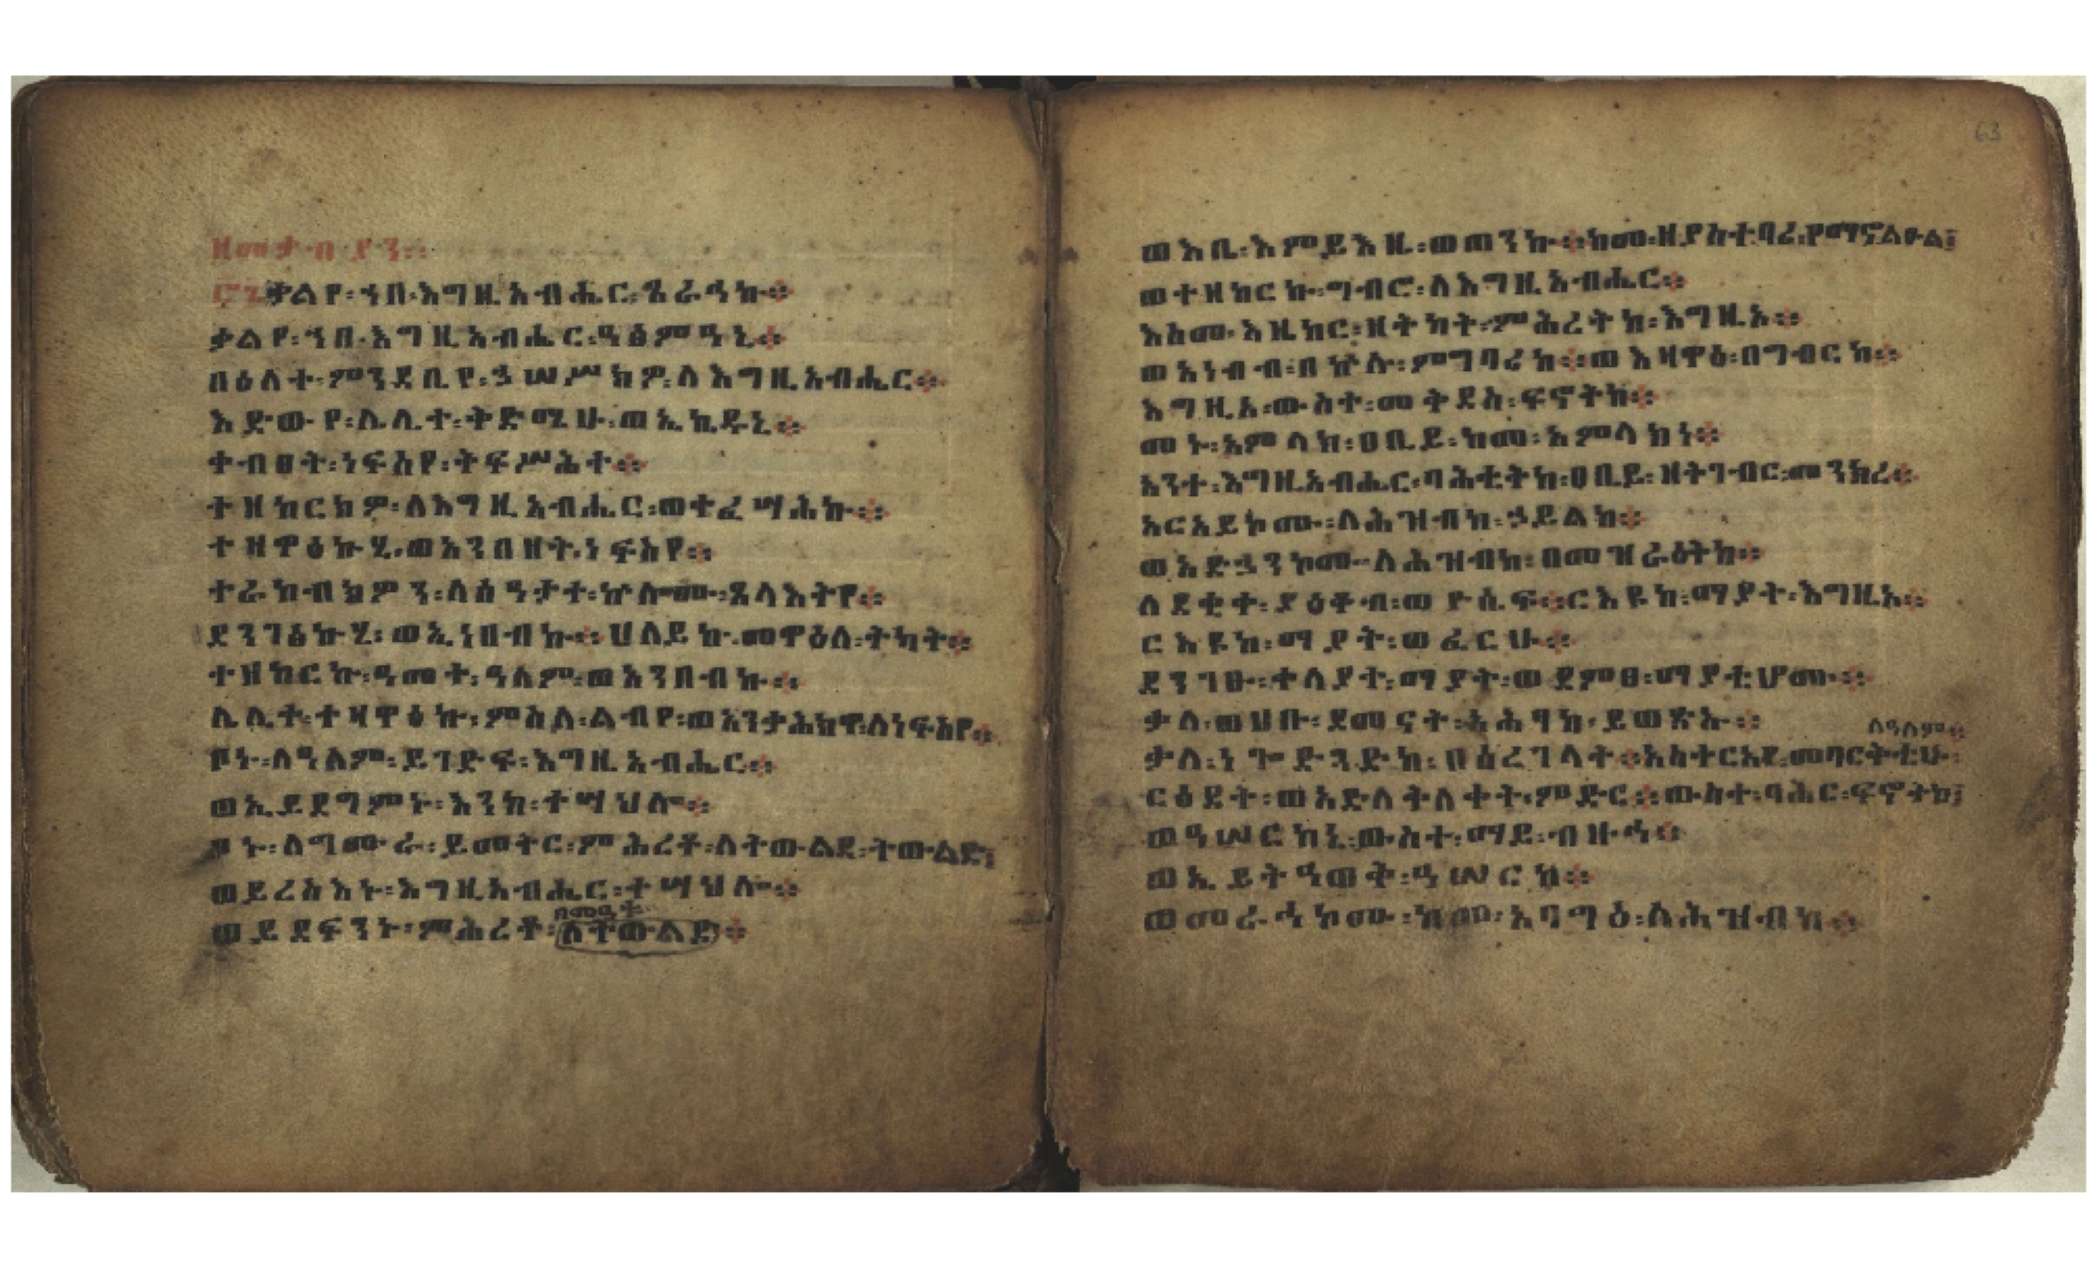 ዘመታብያን።
፸፯ ቃልየ፡ኀበ፡እግዚአብሔር፡ጼራኅኩ።
ቃልየ፡ኀበ፡እግዚአብሔር፡ዓፅምዓኒ።
በዕለተ፡ምንዳቤየ፡ኃሠሥክዎ፡ለእግዚአብሔር።
እደውየ፡ሌሊተ፡ቅድሜሁ፡ወኢኪዱኒ።
ተብፀት፡ነፍስየ፡ትፍሥሕተ።
ተዘከርክዎ፡ለእግዚአብሔር፡ወተፈሣሕኩ።
ተዛዋዕኩሂ፡ወአንበዘት፡ነፍስየ።
ተራከብክዎን፡ለሰዓታተ፡ኵሎሙ፡ጸላእትየ።
ደንገፅኩሂ፡ወኢነበብኩ።ህለይኩ፡መዋዕለ፡ትካት።
ተዘከርኩ፡ዓመተ፡ዓለም፡ወአንበብኩ።
ሌሊተ፡ተዛዋዕኩ፡ምስለ፡ልብየ፡ወአንታሕክዋ፡ለነፍስየ።
ቦኑ፡ለዓለም፡ይገድፍ፡እግዚአብሔር።
ወኢይደግምኑ፡እንከ፡ተሣህሎ።
ቦኑ፡ለግሙራ፡ይመትር፡ምሕረቶ፡ለትውልደ፡ትውልድ፤
ወይረስእኑ፡እግዚአብሔር፡ተሣህሎ።
በመዓቱ
ወይደፍንኑ፡ምሕረቶ፡ለትውልድ።
63
ወእቤ፡እምይእዜ፡ወጠንኩ።ከመ፡ዘያስተባሪ፡የማኖ፡ልዑል፤
ወተዘከርኩ፡ግብሮ፡ለእግዚአብሔር።
እስመ፡እዜከር፡ዘትካት፡ምሕረትከ፡እግዚኦ።
ወአነብብ፡በኵሉ፡ምግባሪከ።ወእዛዋዕ፡በግብርከ።
እግዚኦ፡ውስተ፡መቅደስ፡ፍኖትከ።
መኑ፡አምላክ፡ዐቢይ፡ከመ፡አምላክነ።
አንተ፡እግዚአብሔር፡ባሕቲትከ፡ዐቢይ፡ዘትገብር፡መንክረ።
አርአይኮሙ፡ለሕዝብከ፡ኃይልከ።
ወአድኃንኮሙ፡ለሕዝብከ፡በመዝራዕትከ።
ለደቂቀ፡ያዕቆብ፡ወዮሴፍ።ርእዩከ፡ማያት፡እግዚኦ።
ርእዩከ፡ማያት፡ወፈርሁ።
ደንገፁ፡ቀላያት፡ማያት፡ወደምፀ፡ማያቲሆሙ።
ቃለ፡ወህቡ፡ደመናት፡አሕፃከ፡ይወጽኡ።
ለዓለም።
ቃለ፡ነጐድጓድከ፡በሰረገላት።አስተርአየ፡መባርቅቲሁ፡
ርዕደት፡ወአድለቅለቀት፡ምድር።ውስተ፡ባሕር፡ፍኖትከ፤
ወዓሠርከኒ፡ውስተ፡ማይ፡ብዙኅ።
ወኢይትዓወቅ፡ዓሠርከ።
ወመራኅኮሙ፡ከመ፡አባግዕ፡ለሕዝብከ።